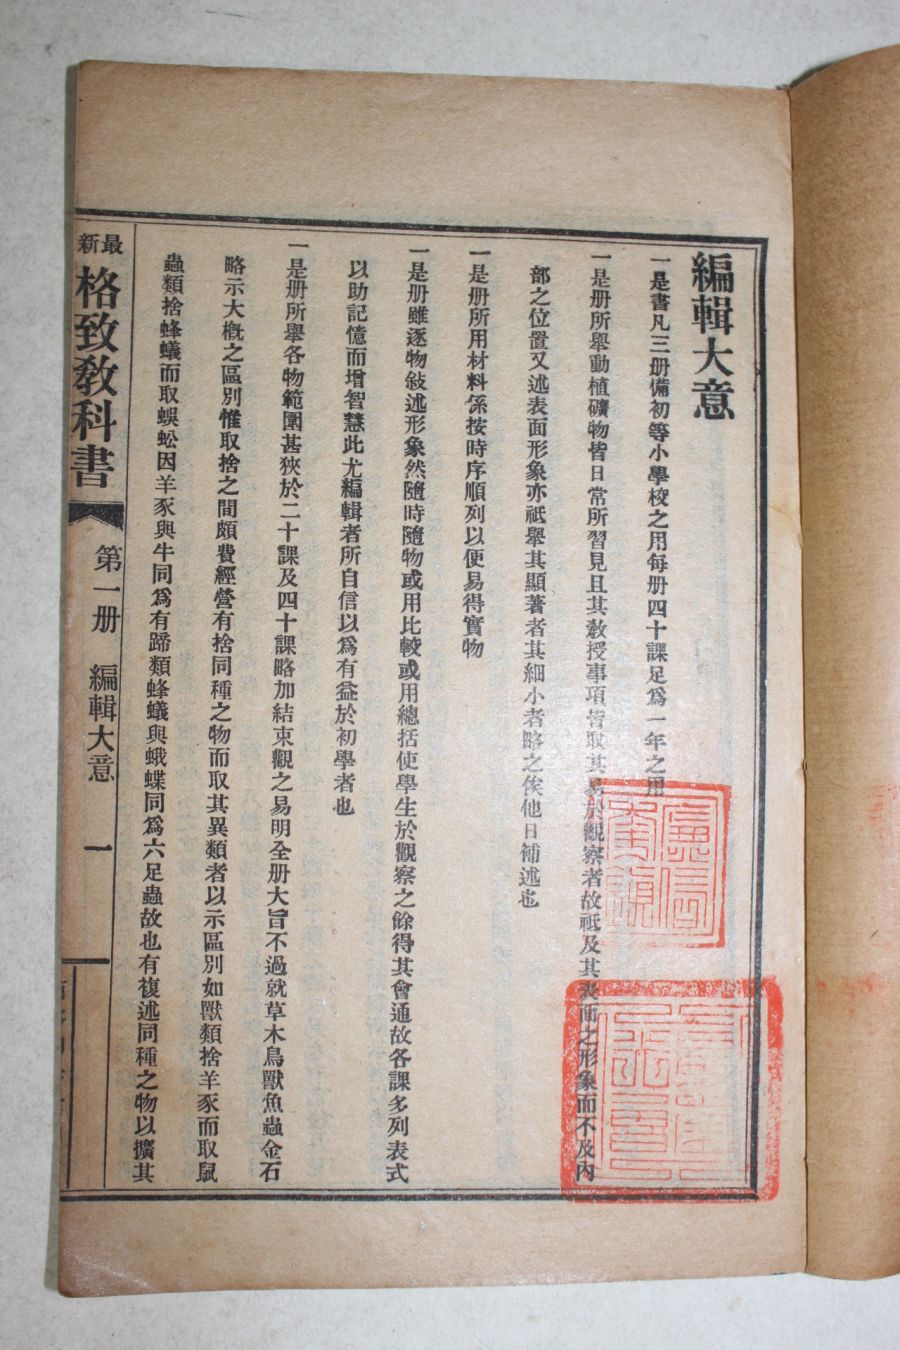 編輯大意
一是書凡三册備初等小學校之用每册四十課足爲一年之用
一是册所舉動植礦物皆日常所習見且其敎授事項皆取其易於觀察者故祗及其表面之形象而不及內
部之位置又述表面形象亦祗舉其顯著者其細小者略之俟他日補述也
一是册所用材料係按時序順列以便易得實物
一是册雖逐物敍述形象然隨時隨物或用比較或用總括使學生於觀察之餘得其會通故各課多列表式
以助記憶而增智慧此尤編輯者所自信以爲有益於初學者也
一是册所舉各物範圍甚狹於二十課及四十課略加結束觀之易明全册大旨不過就草木鳥獸魚蟲金石
略示大槪之區別惟取捨之間頗費經營有捨同種之物而取其異類者以示區別如獸類捨羊豕而取鼠
蟲類捨蜂蟻而取蜈蚣因羊豕與牛同爲有蹄類蜂蟻與蛾蝶同爲六足蟲故也有複述同種之物以擴其
最新
格致敎科書
第一册
編輯大意
一